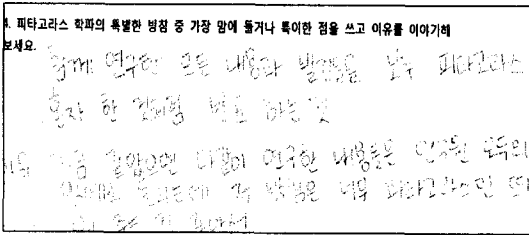 4. 피타고라스 학파의 특별한 방침 중 가장 맘에 들거나 특이한 점을 쓰고 이유를 이야기해
보세요.
함께 연구한 모든 내용과 발견들을 모두 피타고라스
혼자 한 것처럼 발표 하는 것
지금 같았으면 다같이 연구한 내용들은 연구한 모두의
이 방침은 너무 피타고라스만